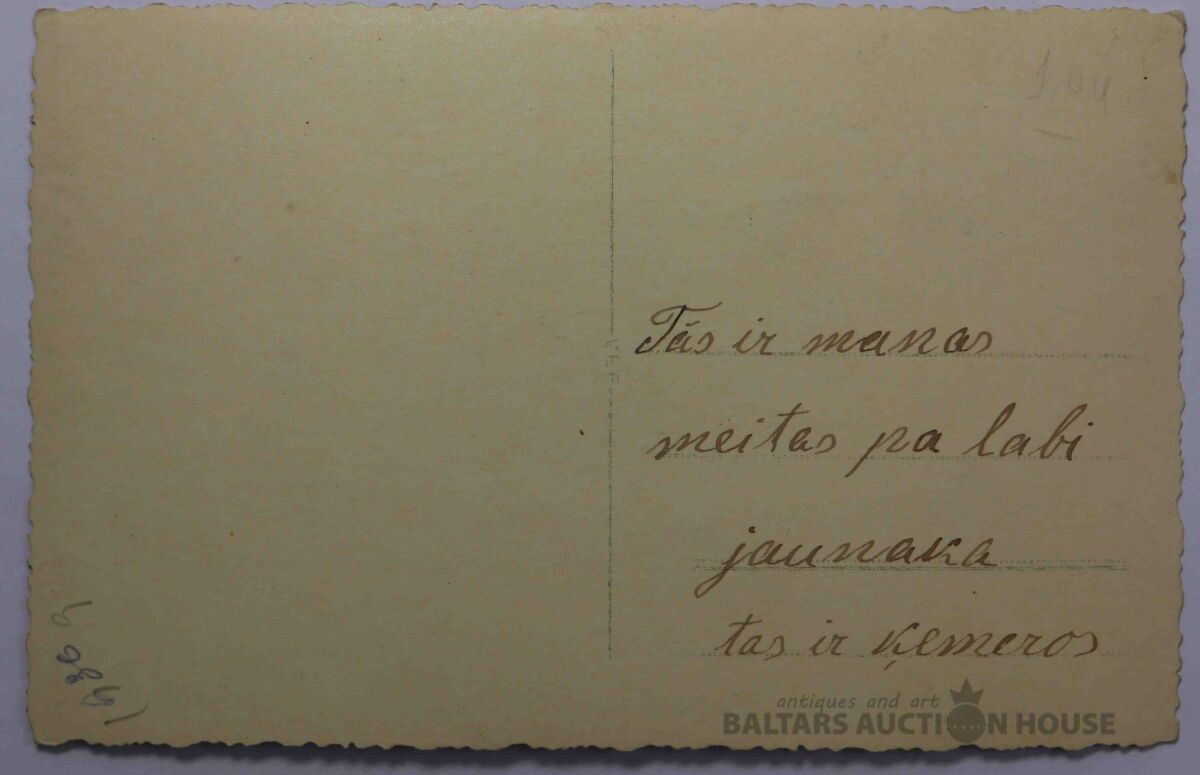 1,00
Tās ir manas
meitas pa labi
jaunaka
tas ir Ķemeros
VEF
antiques and art
BALTARS AUCTION HOUSE